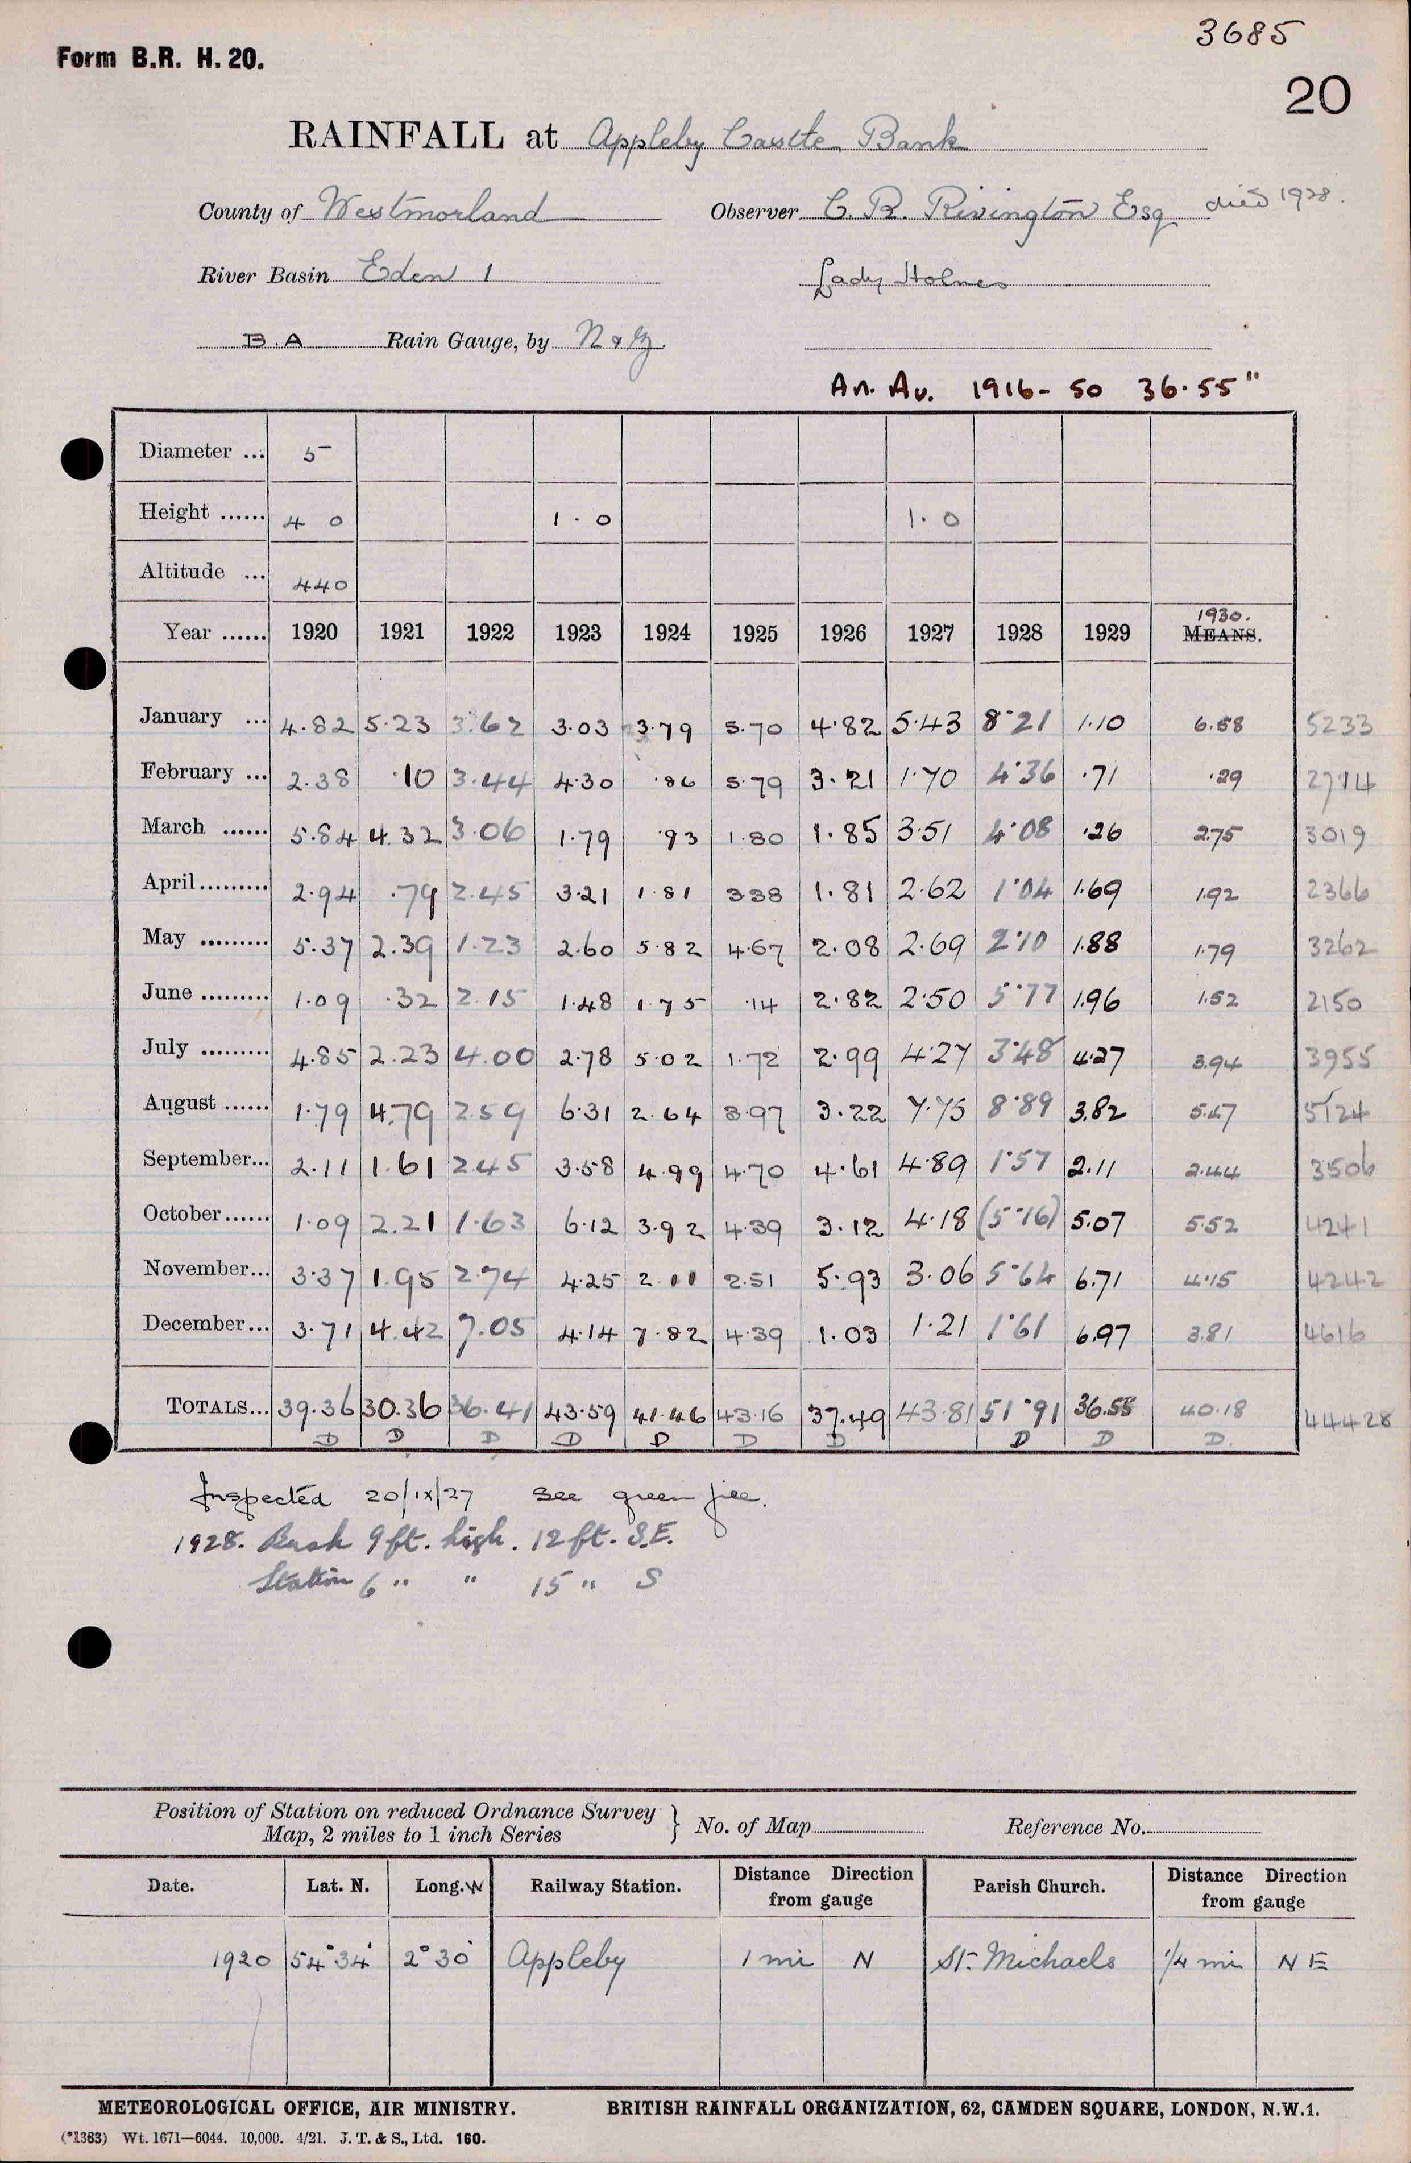 3685
Form B.R. H. 20.
20
RAINFALL at Appleby Castle Bank
County of Westmorland Observer C. R. Rivington Esq died 1928.
River Basin Eden 1 Lady Holmes
B A Rain Gauge, by N & Z.
An. Av. 1916-50 36.55"
Diameter ... 5
Height ...... 4 0 1.0 1.0
Altitude ... 440
1930.
Year ...... 1920 1921 1922 1923 1924 1925 1926 1927 1928 1929 MEANS.
January ... 4.82 5.23 3.62 3.03 3.79 5.70 4.82 5.43 8.21 1.10 6.58 5233
February ... 2.38 .10 3.44 4.30 .86 5.79 3.21 1.70 4.36 .71 .29 2714
March ...... 5.84 4.32 3.06 1.79 .93 1.80 1.85 3.51 4.08 .26 2.75 3019
April ......... 2.94 .79 2.45 3.21 1.81 3.38 1.81 2.62 1.04 1.69 1.92 2366
May ......... 5.37 2.39 1.23 2.60 5.82 4.67 2.08 2.69 2.10 1.88 1.79 3262
June ......... 1.09 .32 2.15 1.48 1.75 .14 2.82 2.50 5.77 1.96 1.52 2150
July ......... 4.85 2.23 4.00 2.78 5.02 1.72 2.99 4.27 3.48 4.27 3.94 3955
August ...... 1.79 4.79 2.59 6.31 2.64 3.97 3.22 7.75 8.89 3.82 5.47 5124
September... 2.11 1.61 2.45 3.58 4.99 4.70 4.61 4.89 1.57 2.11 2.44 3506
October...... 1.09 2.21 1.63 6.12 3.92 4.39 3.12 4.18 (5.16) 5.07 5.52 4241
November... 3.37 1.95 2.74 4.25 2.11 2.51 5.93 3.06 5.64 6.71 4.15 4242
December... 3.71 4.42 7.05 4.14 7.82 4.39 1.03 1.21 1.61 6.97 3.81 4616
TOTALS... 39.36 30.36 36.41 43.59 41.46 43.16 37.49 43.81 51.91 36.55 40.18 44428
D D D D D D D D D D.
Inspected 20/IX/27 See green file.
1928. Bush 9 ft. high. 12 ft. S.E.
Station 6 " " 15 " S
Position of Station on reduced Ordnance Survey
Map, 2 miles to 1 inch Series } No. of Map Reference No.
Date. Lat. N. Long. W Railway Station. Distance Direction from gauge Parish Church. Distance Direction from gauge
1920 54°34' 2°30' Appleby 1 mi N St. Michaels 1/4 mi N E
METEOROLOGICAL OFFICE, AIR MINISTRY. BRITISH RAINFALL ORGANIZATION, 62, CAMDEN SQUARE, LONDON, N.W.1.
(*1383) Wt. 1671—6044. 10,000. 4/21. J. T. & S., Ltd. 160.